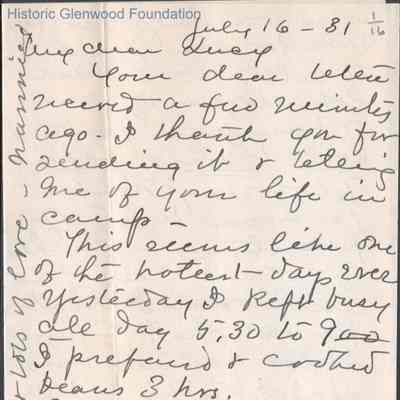 Historic Glenwood Foundation
July 16 - 31 1/16
My dear Lucy
Your dear letter
received a few minutes
ago. I thank you for
sending it & letting
me of your life in
camp -
This seems like one
of the hottest days ever
Yesterday I kept busy
all day 5.30 to 900
I prepared & cooked
beans 3 hrs.
& lots of love - nannied